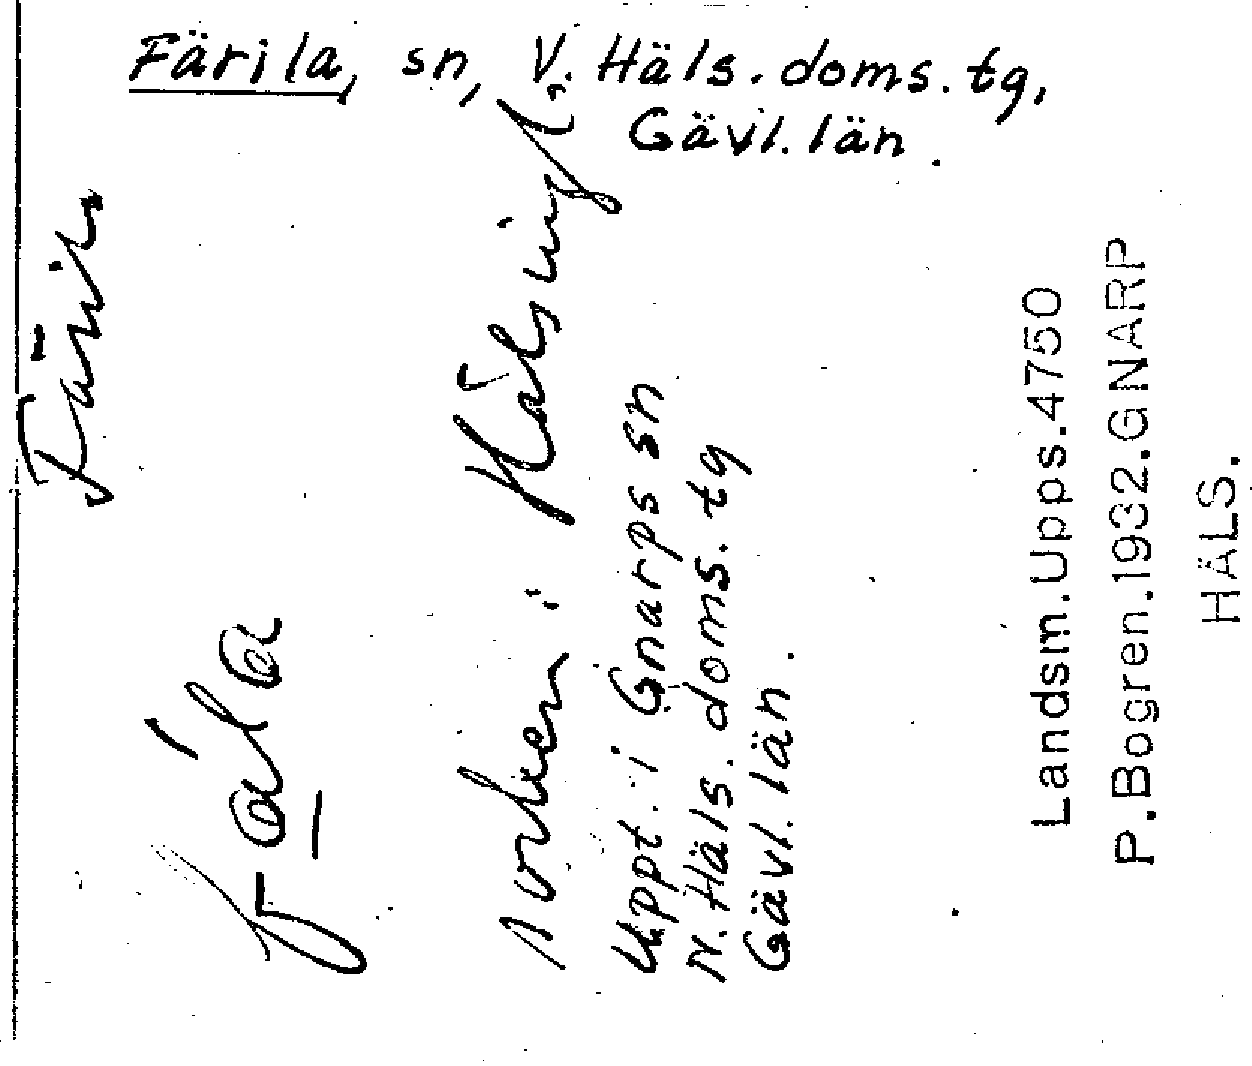 Färila, sn, V. Häls. doms. tg,
Gävl. län.
Färila
socken i Hälsingl.
Uppt. i Gnarps sn
N. Häls. doms. tg
Gävl. län.
Landsm. Upps. 4750
P. Bogren. 1932. GNARP
HÄLS.